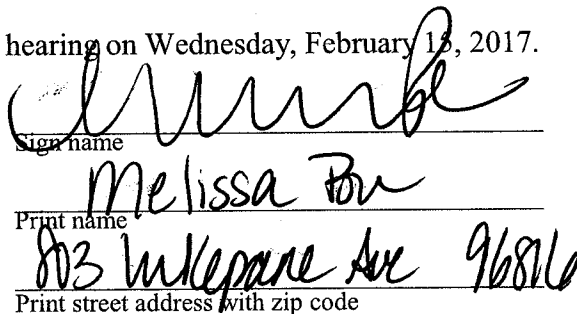 hearing on Wednesday, February 15, 2017.
Sign name
Melissa
Print name
803 Ave 96816
Print street address with zip code